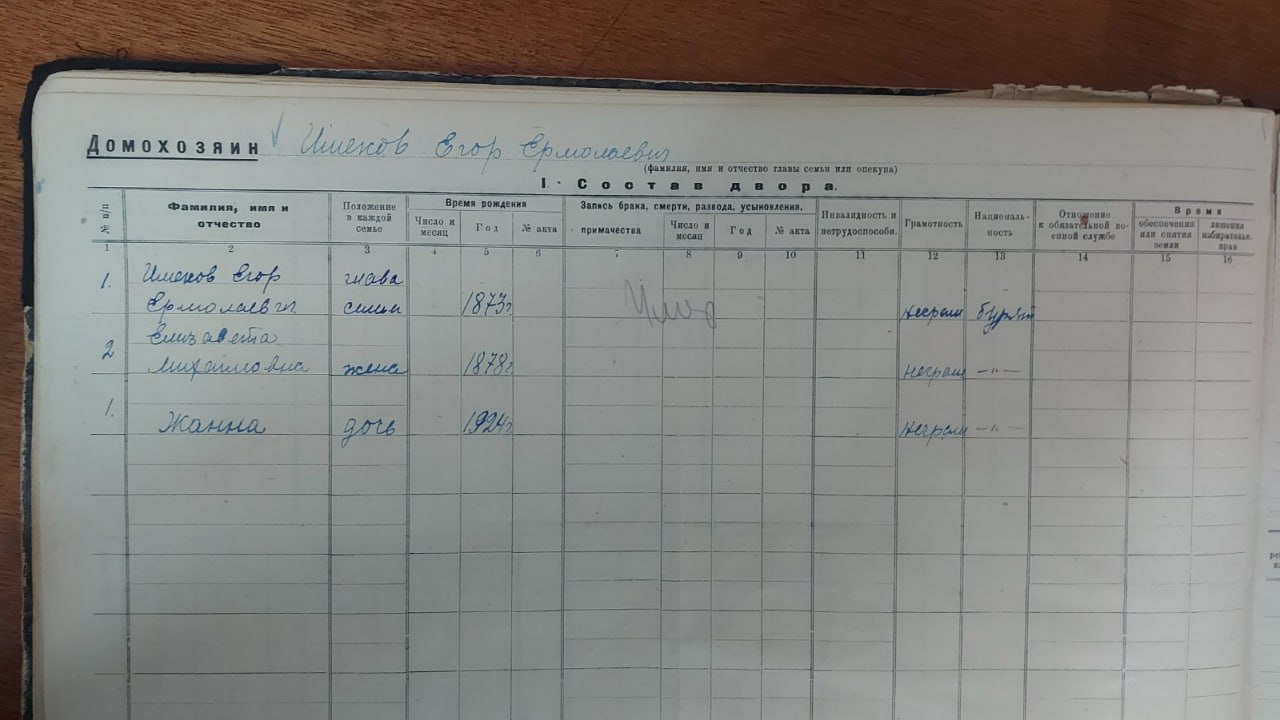 Домохозяин Имеков Егор Ермолаевич
(фамилия, имя и отчество главы семьи или опекуна)
I. Состав двора.
№ п/п
Фамилия, имя и отчество
Положение в каждой семье
Время рождения
Число и месяц
Год
№ акта
Запись брака, смерти, развода, усыновления,
примачества
Число и месяц
Год
№ акта
Инвалидность и нетрудоспособн.
Грамотность
Националь-ность
Отношение к обязательной во-енной службе
Время
обеспечения или снятия земли
лишения избирательн. прав
1 2 3 4 5 6 7 8 9 10 11 12 13 14 15 16
1. Имеков Егор глава
Ермолаевич семьи 1873г неграм бурят
2 Елизавета
Михайловна жена 1878г неграм -"-
1.
Жанна дочь 1924г неграм -"-